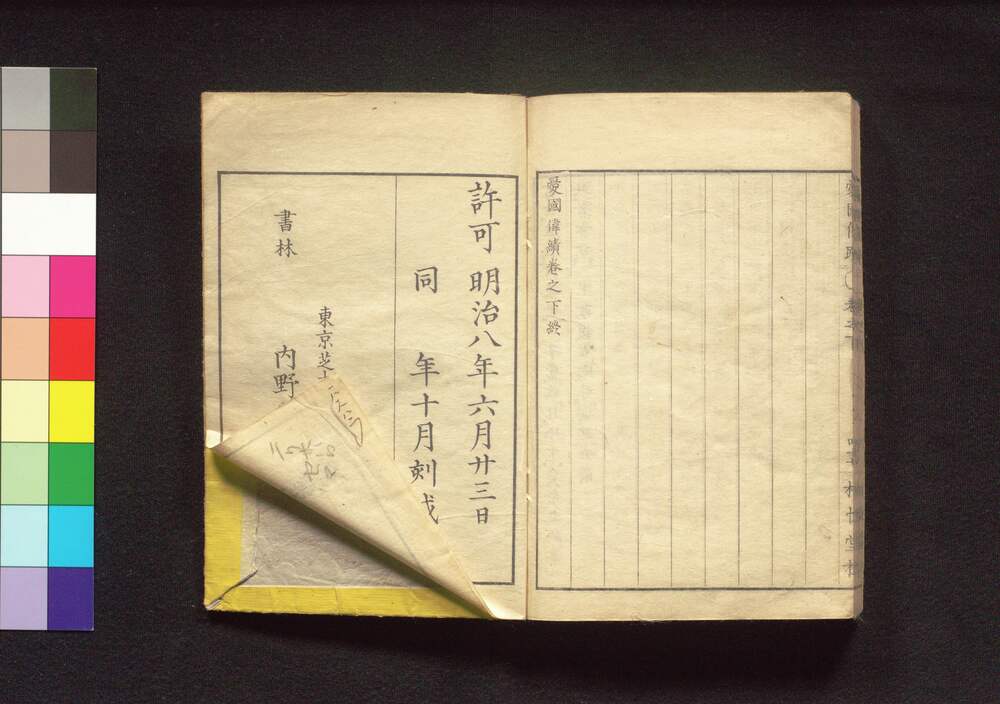 愛國偉績卷之下終
許可 明治八年六月廿三日
同 年十月刻成
東京芝
書林 内野